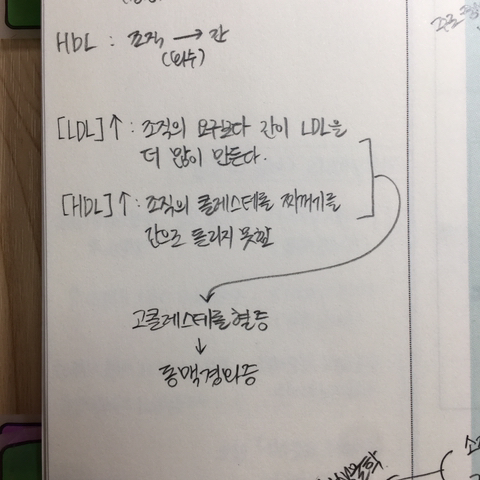 HDL : 조직 → 간
(회수)
[LDL]↑ : 조직의 요구보다 간이 LDL을
더 많이 만든다.
[HDL]↑ : 조직의 콜레스테롤 찌꺼기를
간으로 돌리지 못함
고콜레스테롤혈증
↓
동맥경화증